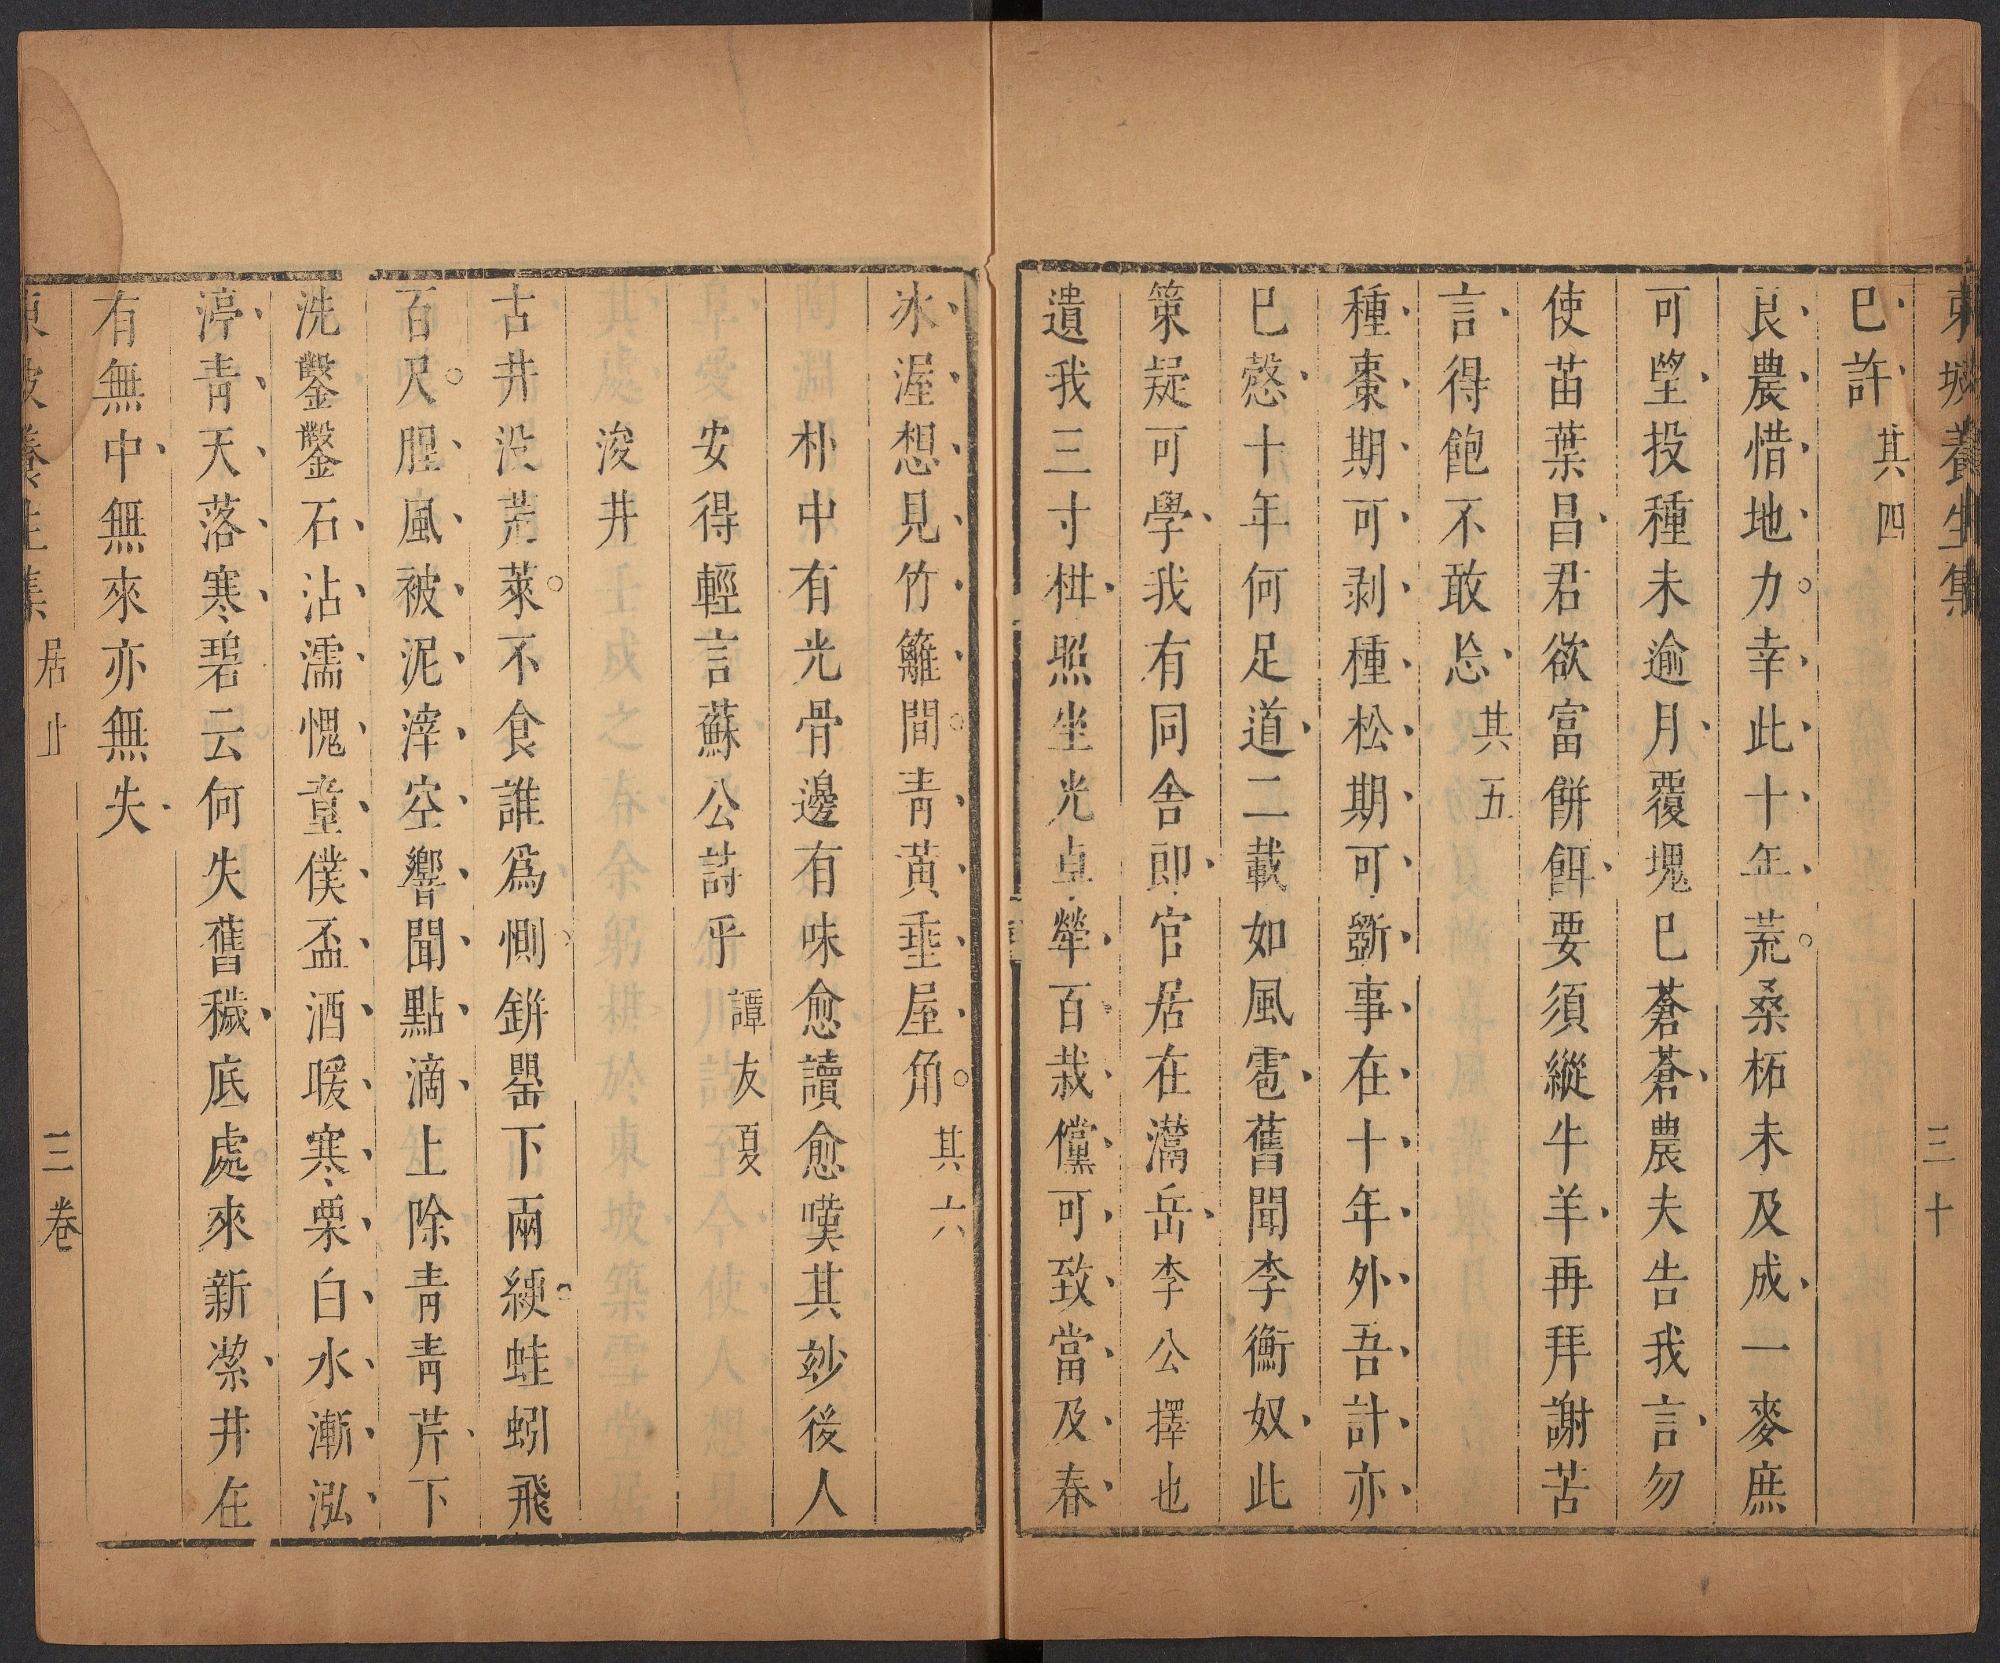 東坡養生集　三十
已許其四
良農惜地力幸此十年荒桑柘未及成一麥庶
可望投種未逾月覆塊已蒼蒼農夫告我言勿
使苗葉昌君欲富餅餌要須縱牛羊再拜謝苦
言得飽不敢忘其五
種棗期可剥種松期可斵事在十年外吾計亦
已慤十年何足道二載如風雹舊聞李衡奴此
策疑可學我有同舍郎官居在灊岳李公擇也
遺我三寸柑照坐光卓犖百栽儻可致當及春
氷渥想見竹籬間青黃垂屋角其六
朴中有光骨邊有味愈讀愈嘆其妙後人
安得輕言蘇公詩乎譚友夏
浚井
古井没荒萊不食誰爲惻缾罌下兩綆蛙蚓飛
百尺腥風被泥滓空響聞點滴上除青青芹下
洗鑿鑿石沾濡愧童僕盃酒暖寒栗白水漸泓
渟青天落寒碧云何失舊穢底處來新潔井在
有無中無來亦無失
東坡養生集　居止　三卷